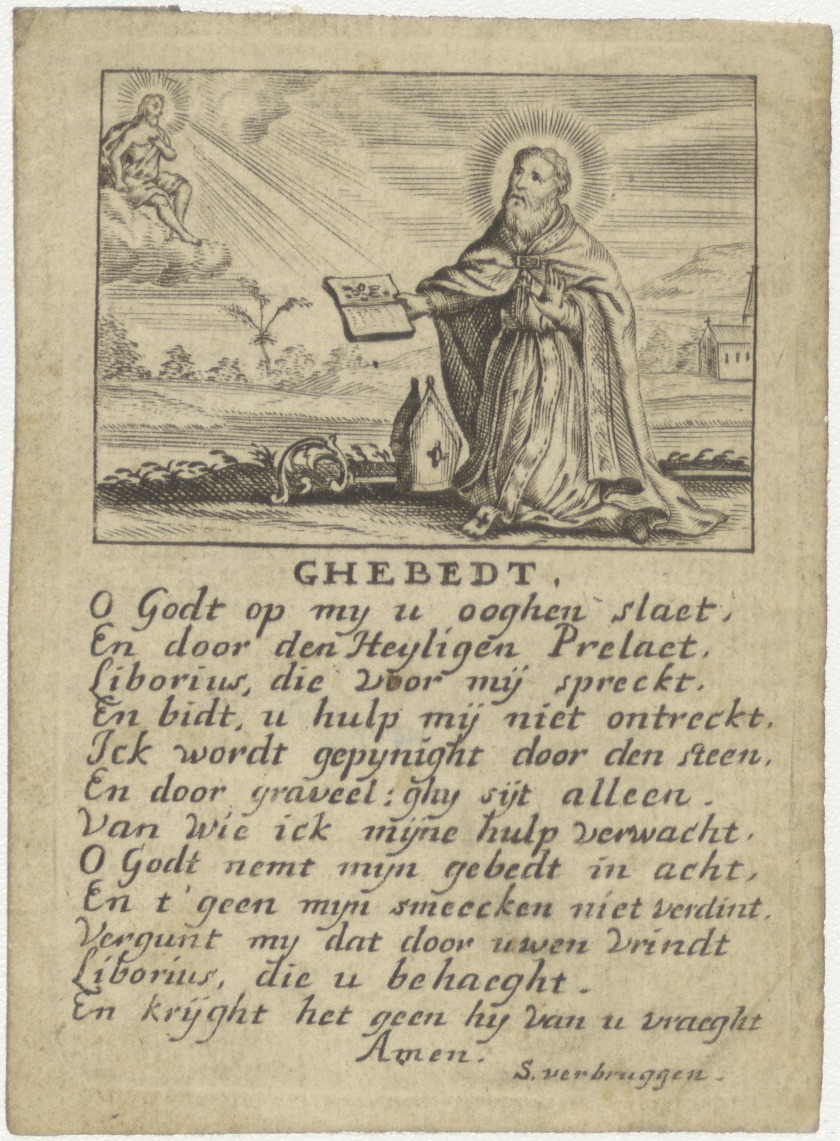 GHEBEDT.
O Godt op my u ooghen slaet,
En door den Heyligen Prelaet.
Liborius, die voor mij spreckt.
En bidt, u hulp mij niet ontreckt.
Ick wordt gepynight door den steen,
En door graveel: ghy sijt alleen.
Van wie ick mijne hulp verwacht.
O Godt nemt mijn gebedt in acht,
En t'geen mijn smeecken niet verdint.
Vergunt my dat door uwen vrindt
Liborius, die u behaeght.
En krijght het geen hy van u vraeght
Amen.
S. verbruggen.